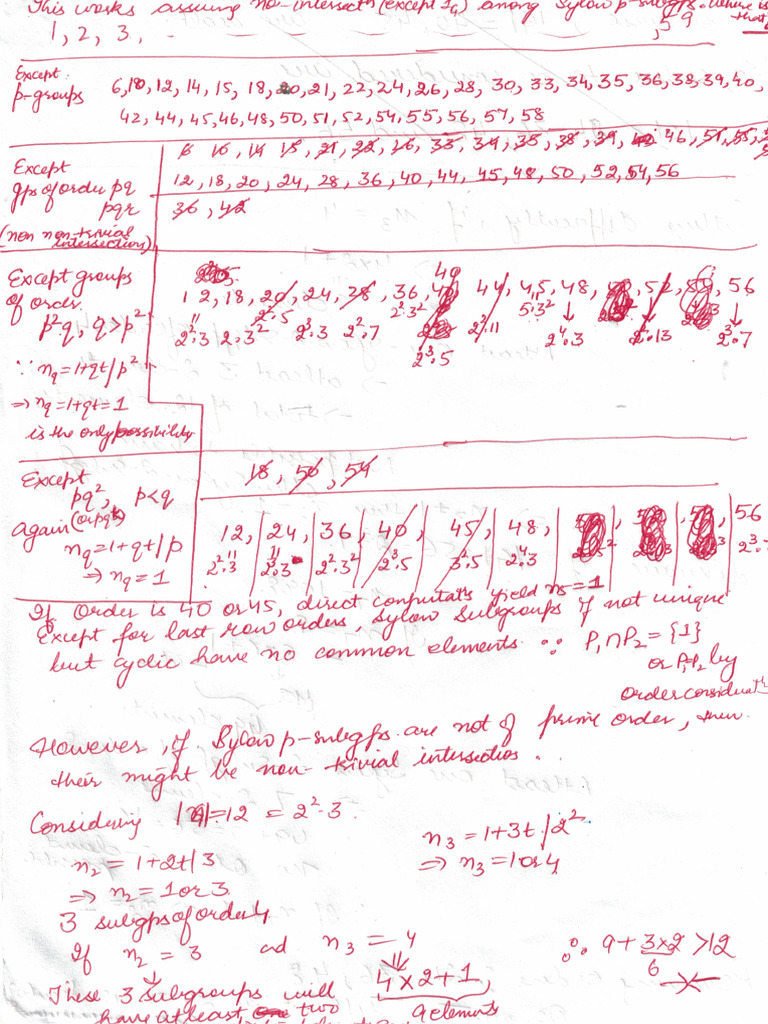 This works assuming no-intersectn (except 1G) among Sylow p-subgps. Where is that
1, 2, 3, . , 59
Except p-groups
6, 10, 12, 14, 15, 18, 20, 21, 22, 24, 26, 28, 30, 33, 34, 35, 36, 38, 39, 40,
42, 44, 45, 46, 48, 50, 51, 52, 54, 55, 56, 57, 58
Except gps of order pq
pqr
(non non-trivial intersections)
6, 10, 14, 15, 21, 22, 26, 33, 34, 35, 38, 39, 46, 51, 55,
12, 18, 20, 24, 28, 36, 40, 44, 45, 48, 50, 52, 54, 56
36, 42
Except groups of order
p²q, q>p²
∵ nq = 1+qt/p²
⇒ nq = 1+qt = 1
is the only possibility
40
12, 18, 20, 24, 28, 36, 44, 45, 48, 52, 56
2²·3 2·3² 2²·5 2³·3 2²·7 2²·3² 2³·5 2²·11 5·3² 2⁴·3 2²·13 2³·7
Except
pq², p<q
again (or pq³)
nq = 1+qt/p
⇒ nq = 1
18, 50, 54
12, 24, 36, 40, 45, 48, 56
2²·3 2³·3 2²·3² 2³·5 3²·5 2⁴·3 2³·7
If order is 40 or 45, direct computatn yield ns = 1
Except for last row orders, Sylow Subgroups if not unique
but cyclic have no common elements ∵ P₁∩P₂ = {1}
or P₁=P₂ by
order consideratn
However, if Sylow p-subgps are not of prime order, then
their might be non-trivial intersections.
Considering |G|=12 = 2²·3
n₂ = 1+2t/3
⇒ n₂ = 1 or 3
n₃ = 1+3t/2²
⇒ n₃ = 1 or 4
3 subgps of order 4
If n₂ = 3 and n₃ = 4
⇓
4×2+1
9 elements
∴ 9 + 3×2 > 12
6
These 3 subgroups will
have at least two